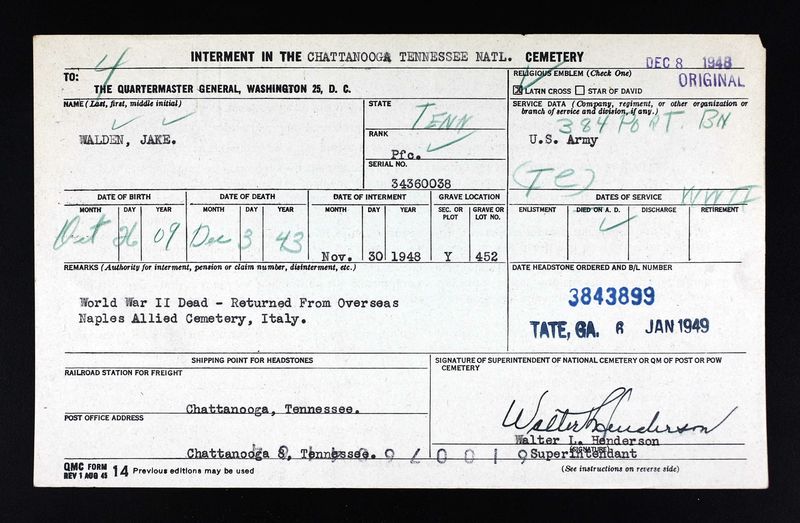 INTERMENT IN THE CHATTANOOGA TENNESSEE NATL. CEMETERY
DEC 8 1948
ORIGINAL
4
TO:
THE QUARTERMASTER GENERAL, WASHINGTON 25, D. C.
RELIGIOUS EMBLEM (Check One)
☒ LATIN CROSS ☐ STAR OF DAVID
NAME (Last, first, middle initial)
WALDEN, JAKE.
STATE
TENN
RANK
Pfc.
SERIAL NO.
34360038
SERVICE DATA (Company, regiment, or other organization or
branch of service and division, if any.)
384 PORT. BN
U.S. Army
(TC)
WWII
DATE OF BIRTH
MONTH DAY YEAR
Oct 26 09
DATE OF DEATH
MONTH DAY YEAR
Dec 3 43
DATE OF INTERMENT
MONTH DAY YEAR
Nov. 30 1948
GRAVE LOCATION
SEC. OR PLOT
GRAVE OR LOT NO.
Y 452
DATES OF SERVICE
ENLISTMENT DIED ON A. D. DISCHARGE RETIREMENT
REMARKS (Authority for interment, pension or claim number, disinterment, etc.)
World War II Dead - Returned From Overseas
Naples Allied Cemetery, Italy.
DATE HEADSTONE ORDERED AND B/L NUMBER
3843899
TATE, GA. 6 JAN 1949
SHIPPING POINT FOR HEADSTONES
RAILROAD STATION FOR FREIGHT
Chattanooga, Tennessee.
POST OFFICE ADDRESS
Chattanooga 8, Tennessee.
SIGNATURE OF SUPERINTENDENT OF NATIONAL CEMETERY OR QM OF POST OR POW
CEMETERY
Walter L Henderson
Walter L. Henderson
(SIGNATURE)
Superintendant
(See instructions on reverse side)
QMC FORM
REV 1 AUG 45 14 Previous editions may be used